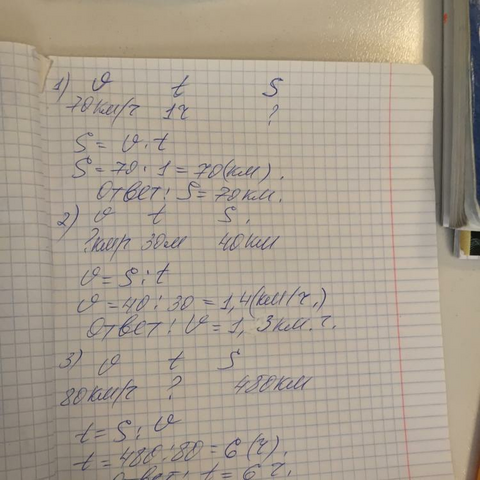 1) v t S
70 км/ч 1ч ?
S = v · t
S = 70 · 1 = 70 (км).
Ответ: S = 70 км.
2) v t S.
? км/ч 30м 40 км
v = S : t
v = 40 : 30 = 1,4 (км/ч.)
Ответ: v = 1, 3 км. ч.
3) v t S
80 км/ч ? 480 км
t = S : v
t = 480 : 80 = 6 (ч).
Ответ: t = 6 ч.